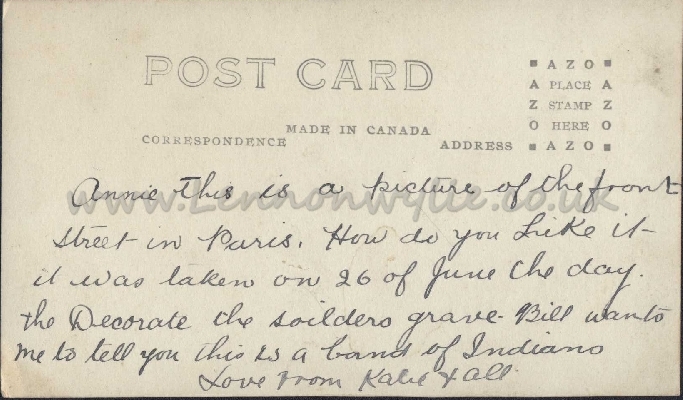 POST CARD
MADE IN CANADA
CORRESPONDENCE
ADDRESS
AZO
A PLACE A
Z STAMP Z
O HERE O
AZO
www.Lennonwylie.co.uk
Annie this is a picture of the front
street in Paris. How do you Like it
it was taken on 26 of June the day.
the Decorate the soilders grave. Bill wants
me to tell you this is a band of Indians
Love from Katie & all.